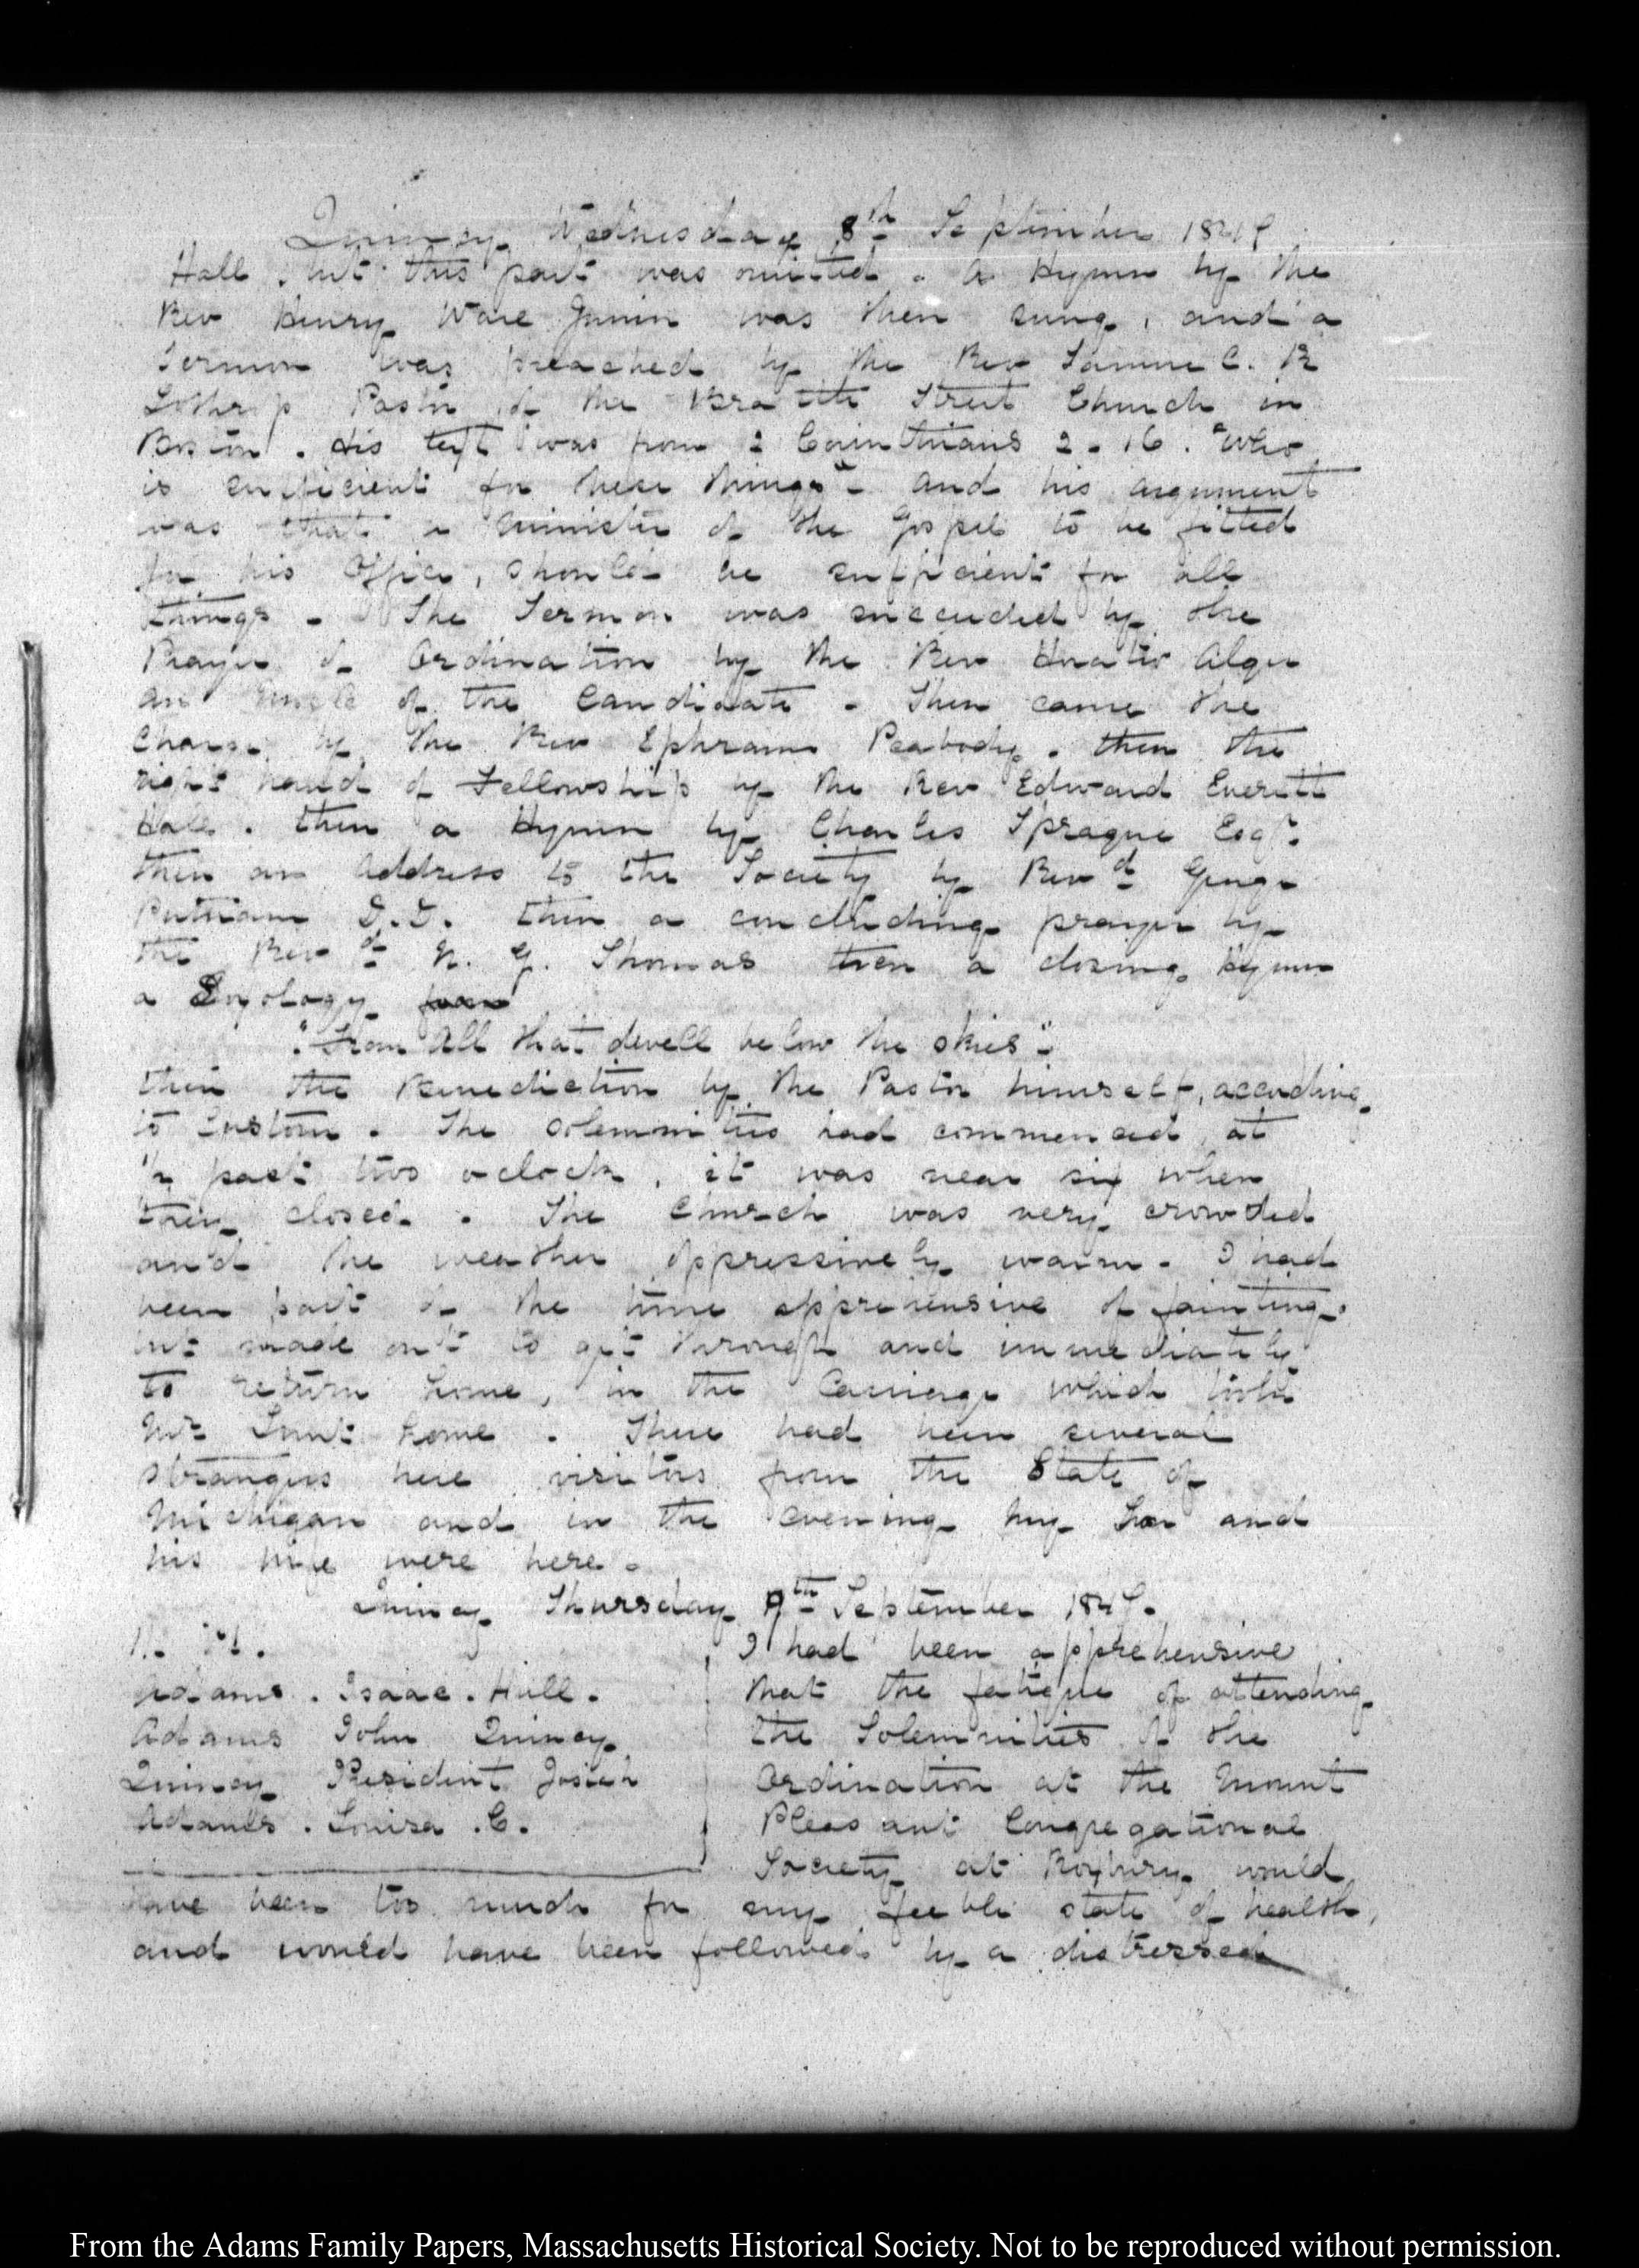 Quincy Wednesday 8th September 1847
Hall. but this part was omitted. a Hymn by the
Rev Henry Ware Junior was then sung, and a
Sermon was preached by the Rev Samuel. R
Lothrop Pastor of the Brattle Street Church in
Boston. His text was from 2 Corinthians 2.16. "Who
is sufficient for these things"- and his argument
was that a Minister of the Gospel to be fitted
for his Office, should be sufficient for all
things - The Sermon was succeeded by the
Prayer of Ordination by the Rev Horatio Alger
an Uncle of the Candidate. Then came the
Charge by the Rev Ephraim Peabody. then the
right hand of Fellowship by the Rev Edward Everett
Hale. then a Hymn by Charles Sprague Esqr.
then an Address to the Society by Revd George
Putnam D.D. then a concluding prayer by
the Revd Thomas then a closing Hymn
a Doxology from
"From all that dwell below the skies"-
then the Benediction by the Pastor himself, according
to Custom. The solemnities had commenced at
1/2 past two o'clock, it was near six when
they closed. The Church was very crowded
and the weather oppressively warm. I had
been part of the time apprehensive of fainting.
but made out to get through and immediately
to return home, in the Carriage which took
Mr Lunt home. There had been several
strangers here visitors from the State of
Michigan and in the evening my Son and
his wife were here.
Quincy Thursday 9th September 1847.
I had been apprehensive
Adams. Isaac. Hull.
that the fatigue of attending
Adams John Quincy
the Solemnities of the
Quincy President Josiah
Ordination at the Mount
Adams. Louisa. C.
Pleasant Congregational
Society at Roxbury would
have been too much for my feeble state of health,
and would have been followed by a distressed
From the Adams Family Papers, Massachusetts Historical Society. Not to be reproduced without permission.